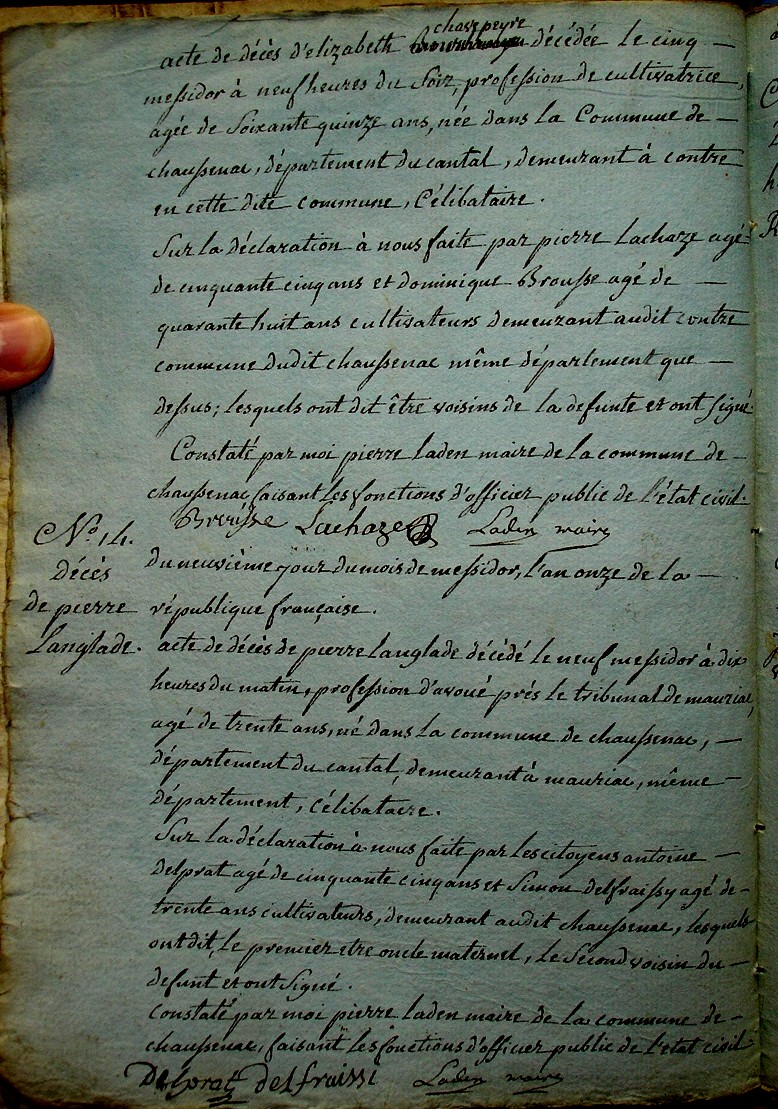 chazepeyre
acte de décès d'elizabeth décédée le cinq
messidor à neuf heures du soir, profession de cultivatrice,
agée de soixante quinze ans, née dans la Commune de
chaussenac, département du cantal, demeurant à contre
en cette dite commune, Célibataire.
Sur la déclaration à nous faite par pierre Lachaze agé
de cinquante cinq ans et dominique Brousse agé de
quarante huit ans cultivateurs demeurant audit contre
commune dudit chaussenac même département que
dessus; lesquels ont dit être voisins de la defunte et ont signé.
Constaté par moi pierre laden maire de la commune de
chaussenac faisant les fonctions d'officier public de l'état civil.
Brousse Lachaze Laden maire
N.º 14.
décès
de pierre
Langlade.
du neuvième jour du mois de messidor, l'an onze de la
république française.
acte de décès de pierre langlade décédé le neuf messidor à dix
heures du matin, profession d'avoué près le tribunal de mauriac,
agé de trente ans, né dans la commune de chaussenac,
département du cantal, demeurant à mauriac, même
département, Célibataire.
Sur la déclaration à nous faite par les citoyens antoine
delprat agé de cinquante cinq ans et Simon delfraissy agé de
trente ans cultivateurs, demeurant audit chaussenac, lesquels
ont dit, le premier etre oncle maternel, le Second voisin du
defunt et ont Signé.
Constaté par moi pierre laden maire de la commune de
chaussenac, faisant les fonctions d'officier public de l'état civil
Delprat delfraissi Laden maire